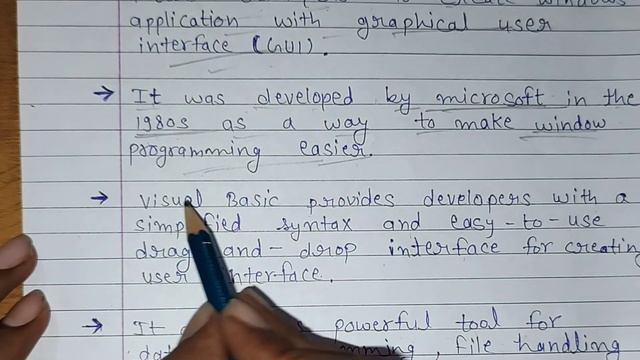 create windows
application with graphical user
interface (GUI).
→ It was developed by microsoft in the
1980s as a way to make window
programming easier.
→ Visual Basic provides developers with a
simplified syntax and easy-to-use
drag-and-drop interface for creating
user interface.
→ It powerful tool for
, file handling